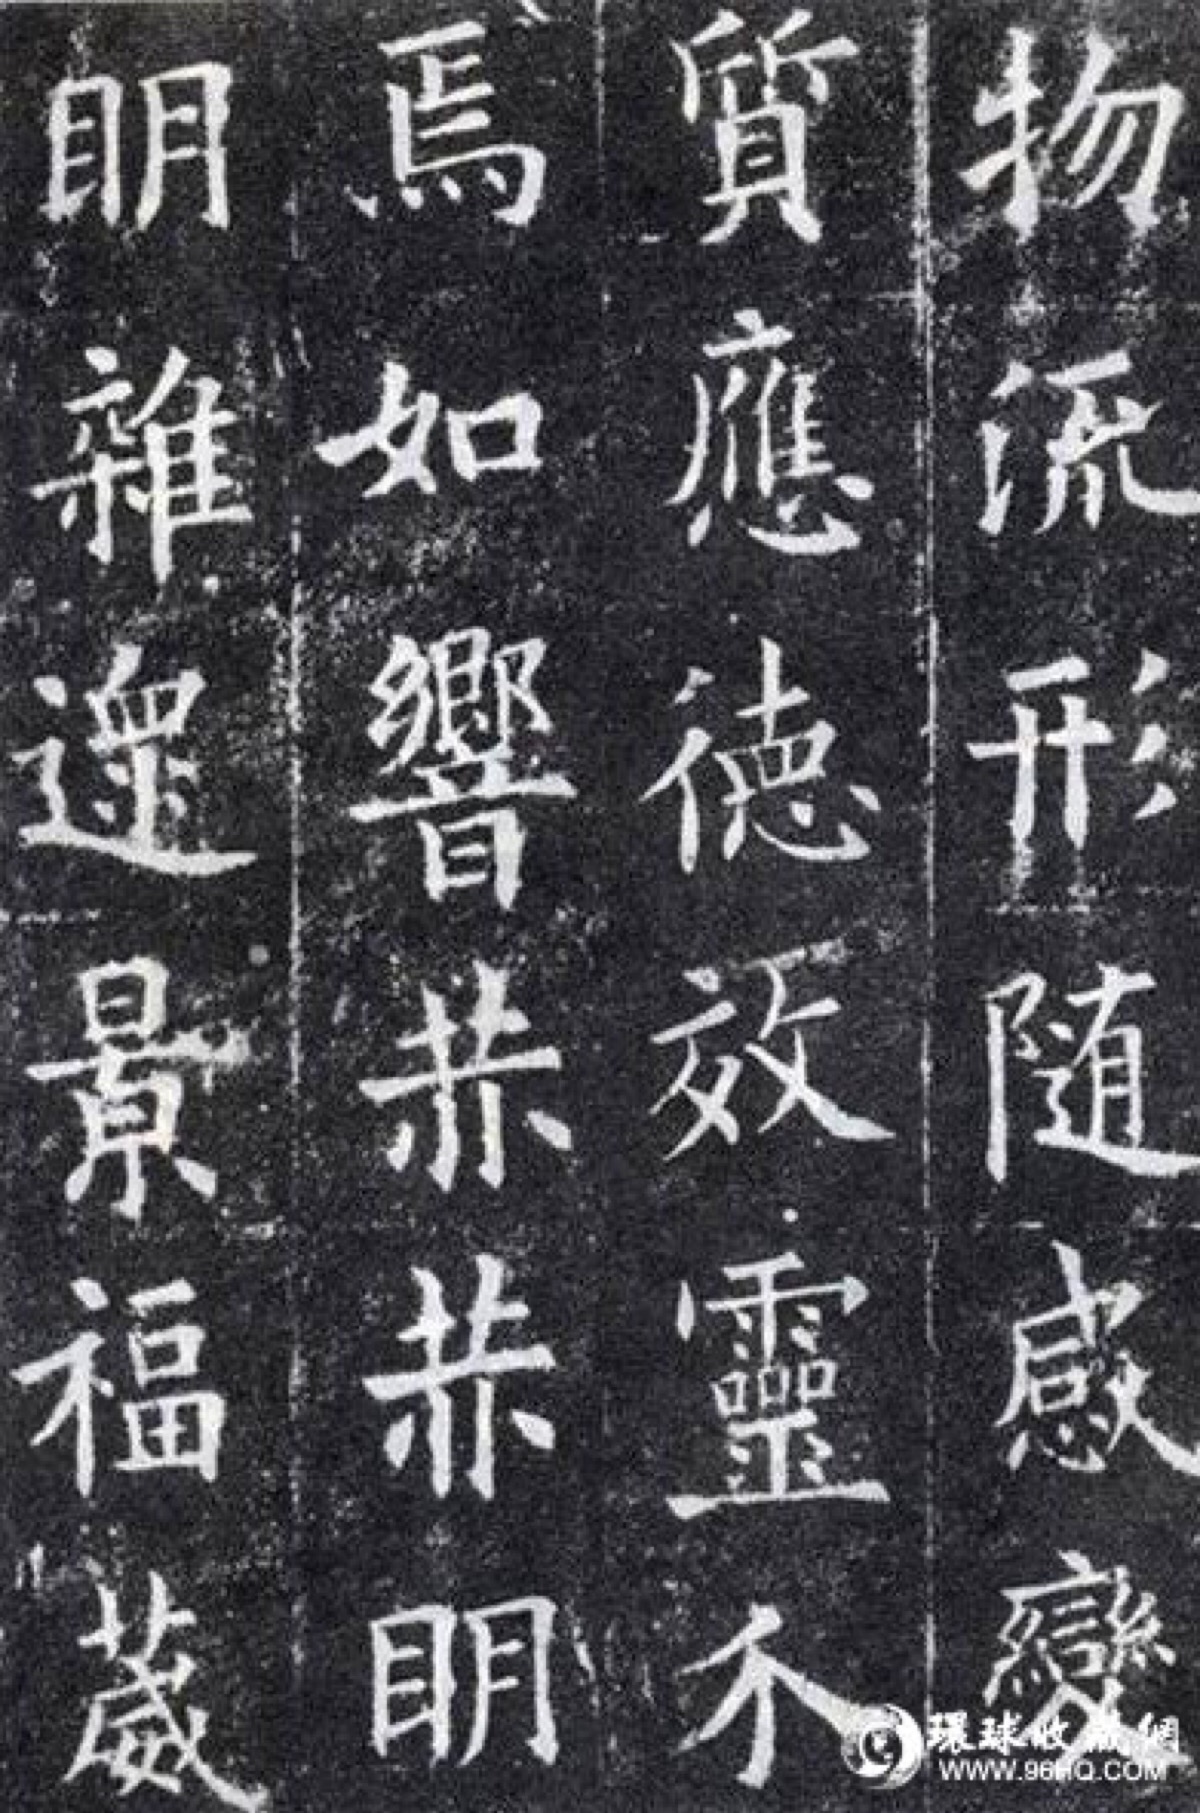 物流形随感變
質應德效靈不
焉如響赫赫明
明雜遝景福葳
環球收藏網
WWW.96HQ.COM